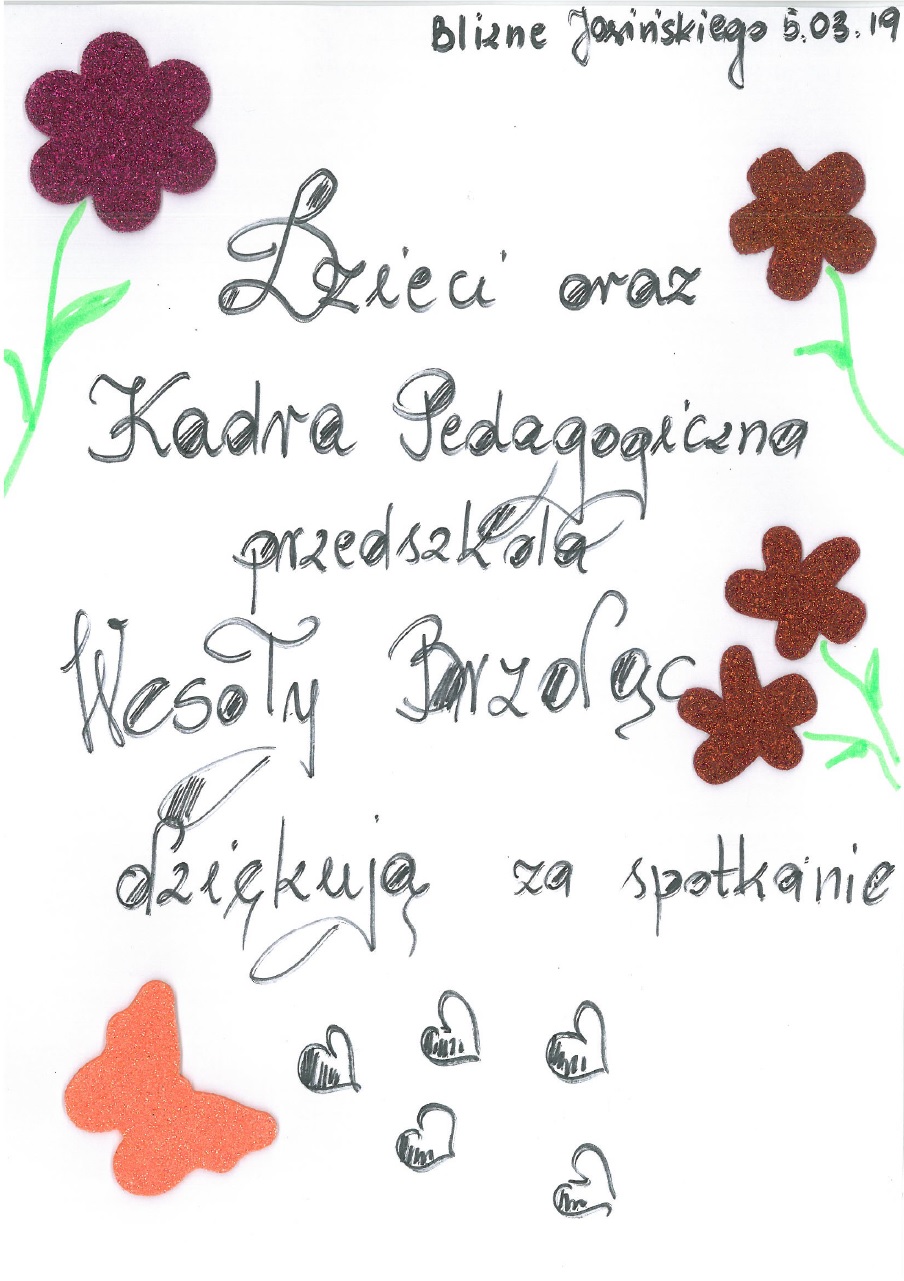 Blizne Jasińskiego 5.03.19
Dzieci oraz
Kadra Pedagogiczna
przedszkola
Wesoły Brzdąc
dziękują za spotkanie